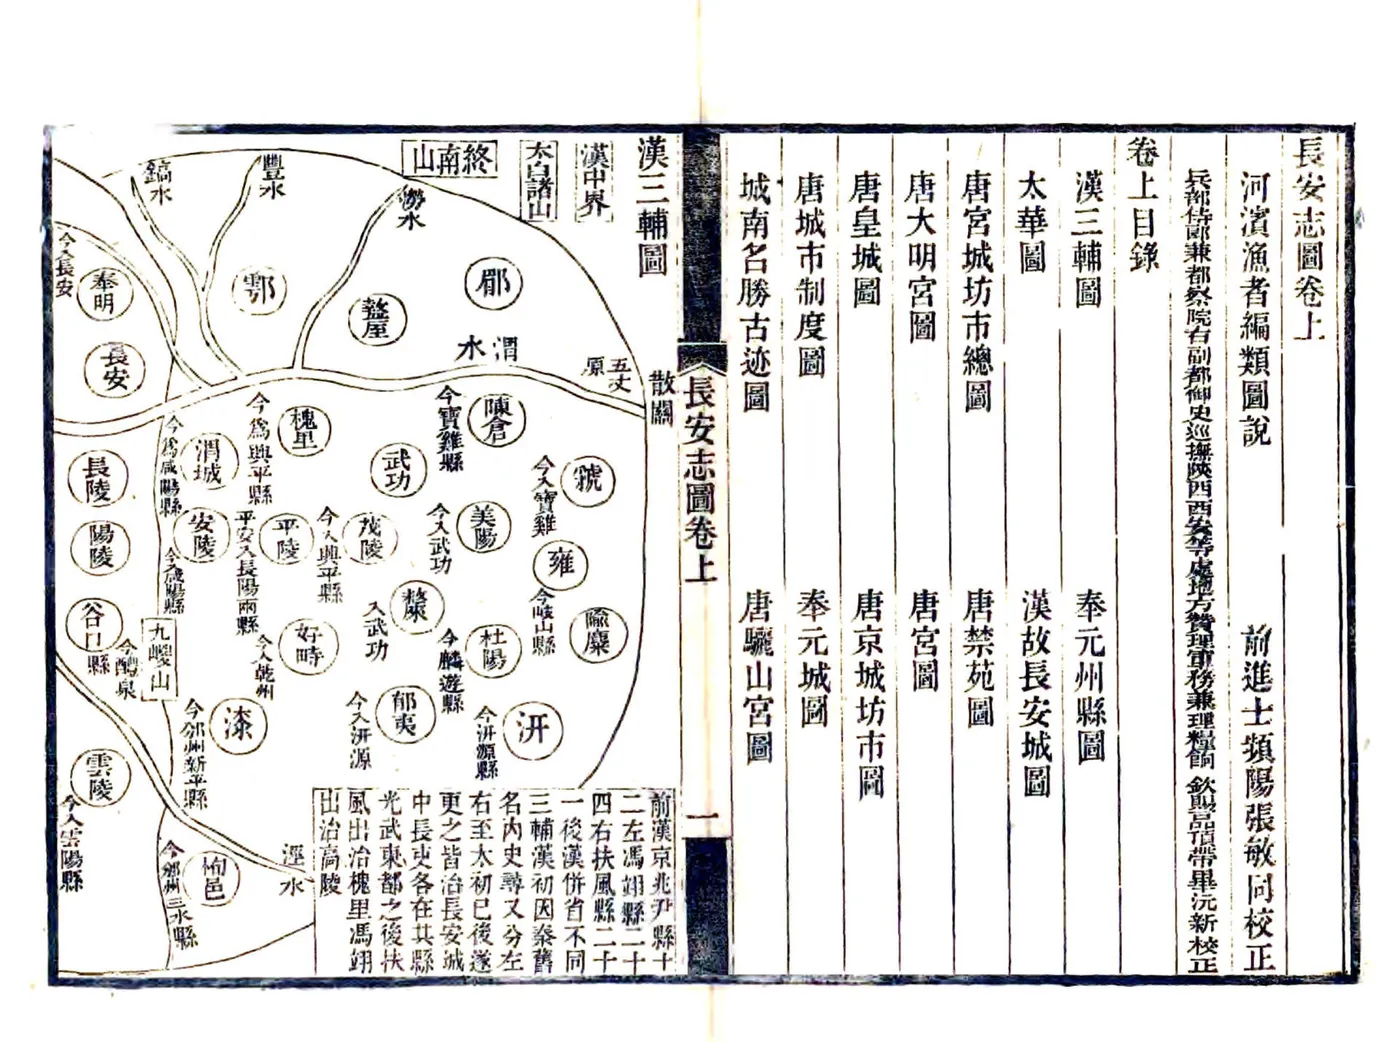 長安志圖卷上
河濱漁者編類圖說
前進士頻陽張敏同校正
兵部侍郎兼都察院右副都御史巡撫陝西西安等處地方贊理軍務兼理糧餉 欽賜品頂帶畢沅新校正
卷上目錄
漢三輔圖
奉元州縣圖
太華圖
漢故長安城圖
唐宮城坊市總圖
唐禁苑圖
唐大明宮圖
唐宮圖
唐皇城圖
唐京城坊市圖
唐城市制度圖
奉元城圖
城南名勝古迹圖
唐驪山宮圖
長安志圖卷上
一
漢三輔圖
漢中界
太白諸山
終南山
澇水
豐水
鎬水
散關
五丈原
渭水
郿
盩厔
鄠
奉明
今入長安
長安
陳倉
今寶雞縣
槐里
今爲興平縣
渭城
今爲咸陽縣
長陵
武功
虢
今入寶雞
美陽
今入武功
茂陵
今入興平縣
平陵
平安入長陽兩縣
安陵
今入咸陽縣
陽陵
雍
今岐山縣
隃麋
杜陽
今麟遊縣
斄
入武功
好畤
今入乾州
九嵕山
谷口縣
今醴泉
汧
今汧源縣
郁夷
今入汧源
漆
今邠州新平縣
雲陵
今入雲陽縣
栒邑
今邠州三水縣
涇水
前漢京兆尹縣十
二左馮翊縣二十
四右扶風縣二十
一後漢併省不同
三輔漢初因秦舊
名內史尋又分左
右至太初已後遂
更之皆治長安城
中長吏各在其縣
光武東都之後扶
風出治槐里馮翊
出治高陵